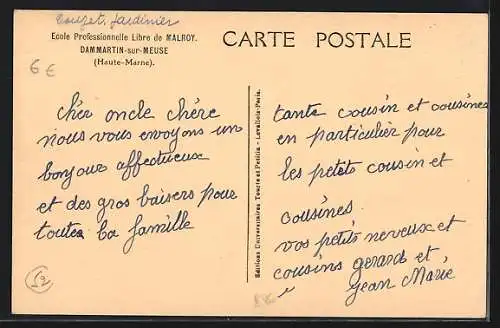 Ecole Professionnelle Libre de MALROY.
DAMMARTIN-sur-MEUSE
(Haute-Marne).
CARTE POSTALE
6 €
cher oncle chère
nous vous envoyons un
bonjour affectueux
et des gros baisers pour
toutes la famille
52
Editions Universitaires Tourte et Petitin - Levallois-Paris.
tante cousin et cousines
en particulier pour
les petits cousin et
cousines
vos petits neveux et
cousins gerard et
Jean Marie